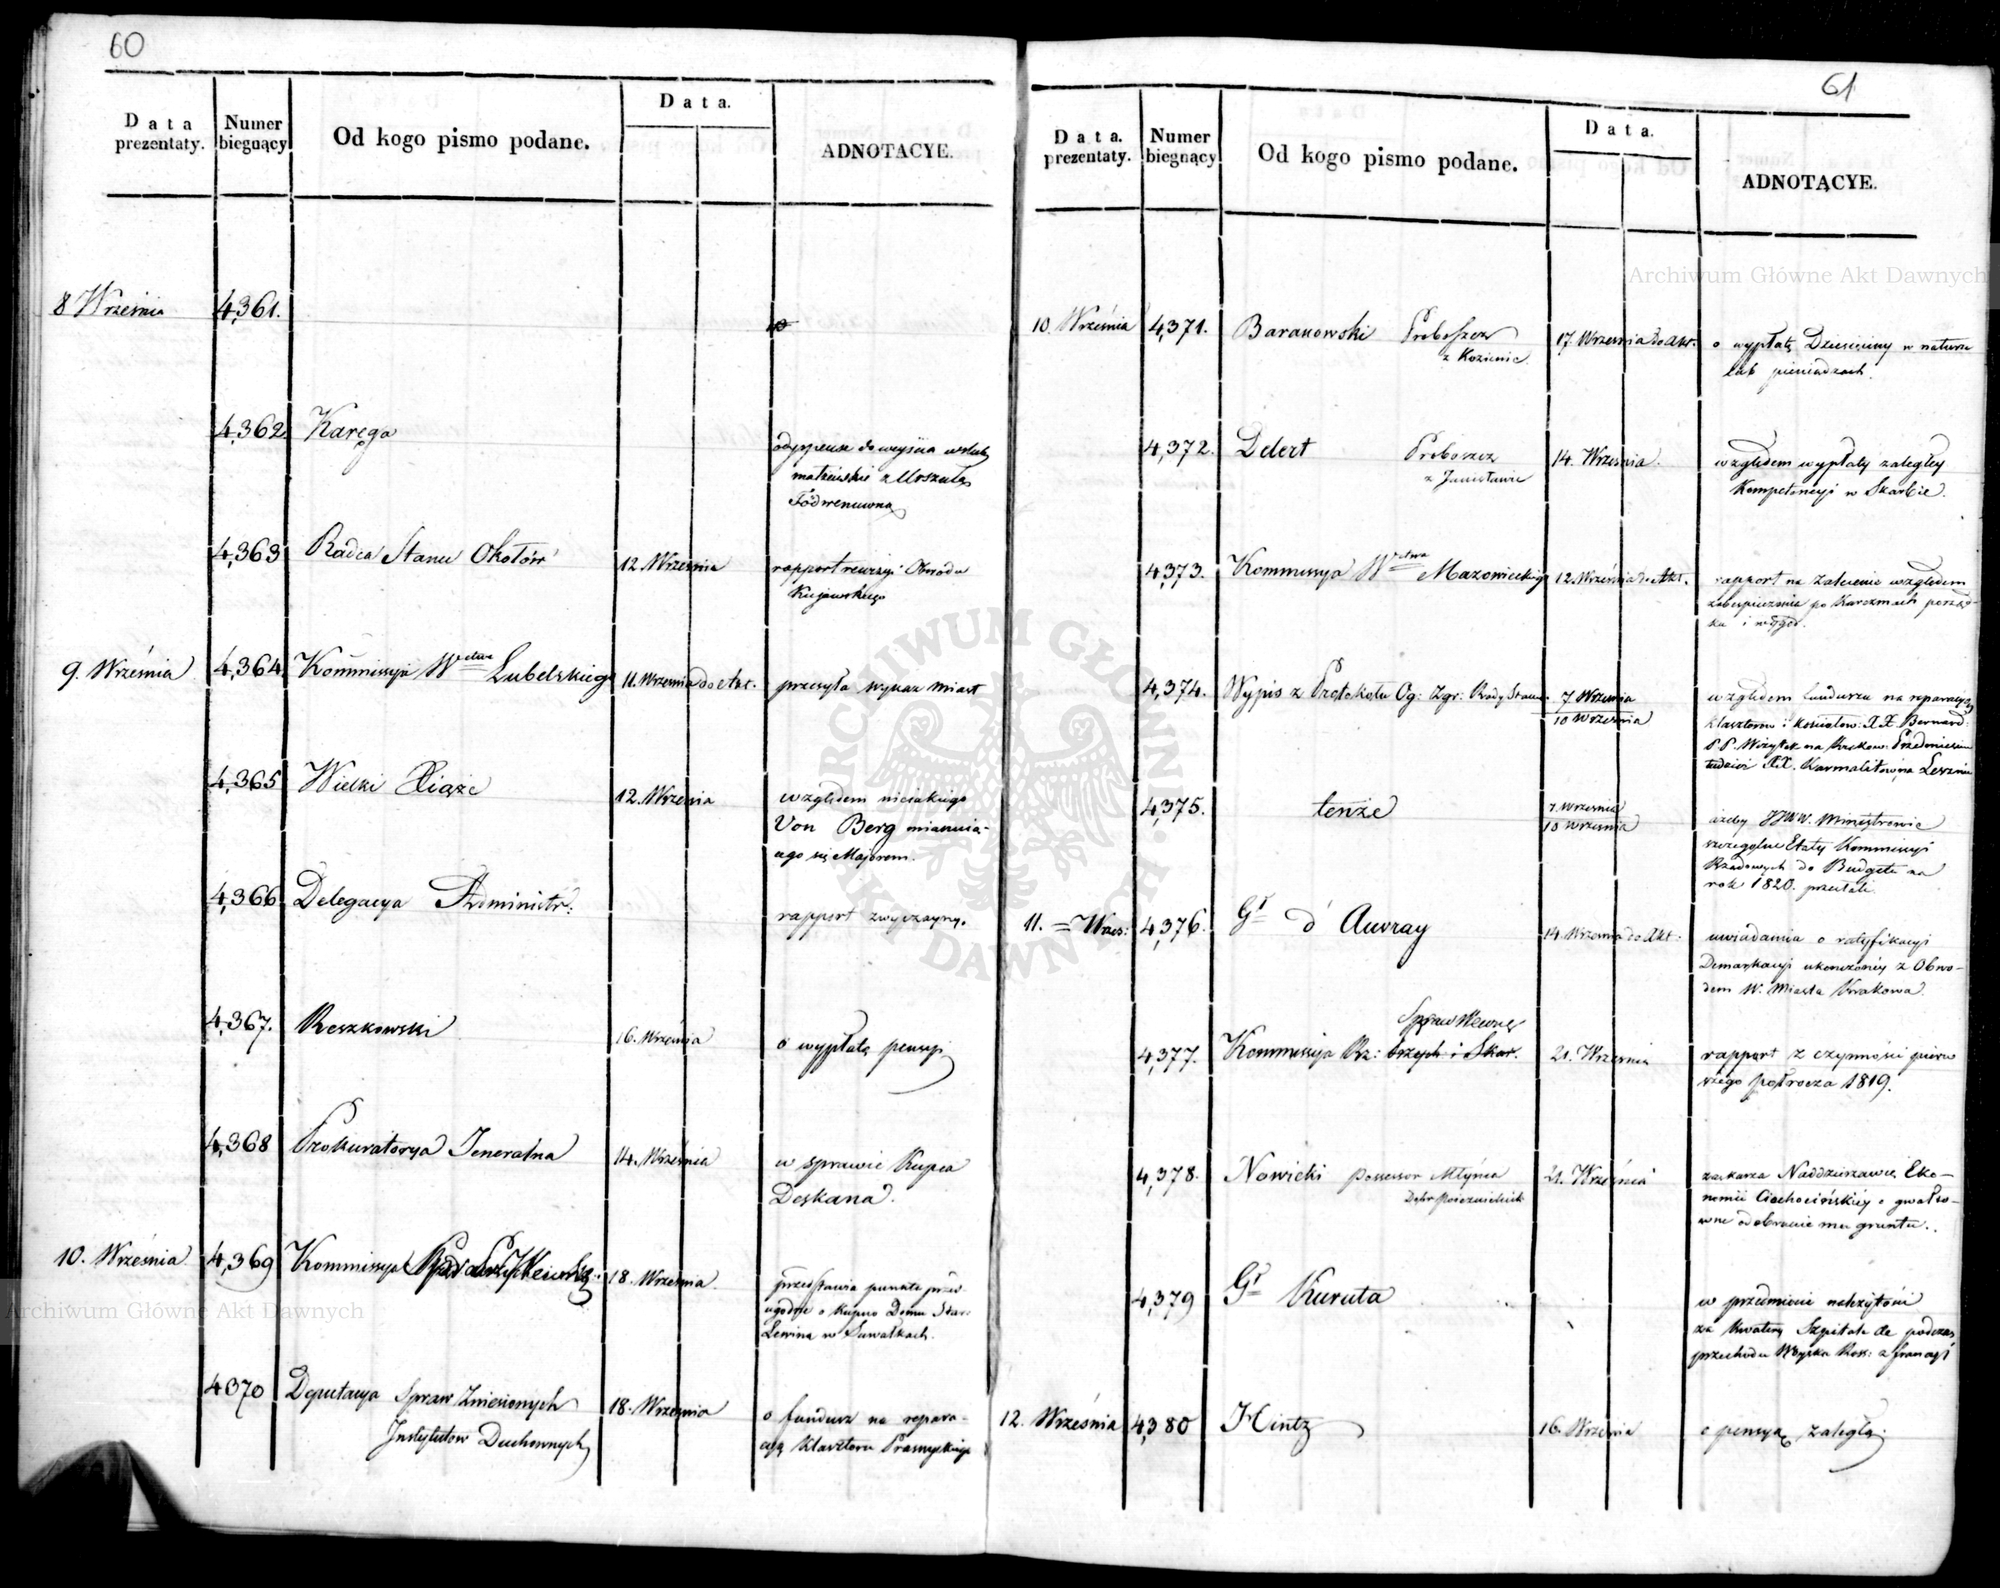 60
Data prezentaty.
Numer biegnący
Od kogo pismo podane.
Data.
ADNOTACYE.
8 Września 4,361.
4,362 Karęga
do weyścia w śluby
małżeńskie z Urszulą
4,363 Radca Stanu Okołów 12. Września rapport rewizyi Obwodu
Kujawskiego
9. Września 4,364 Kommissyja Wdztwa Lubelskiego 11. Września do Akt. przesyła wykaz miast
4,365 Wielki Xiąże 12. Września względem niejakiego
Von Berg mianuią-
cego się Majorem.
4,366 Delegacya Administr: rapport zwyczayny.
4,367. Reszkowski 16. Września o wypłatę pensyi
4,368 Prokuratorya Jeneralna 14. Września w sprawie Kupca
Deskana.
10. Września 4,369 Kommissya 18. Września przedstawia punkta przed-
ugodne o kupno Domu Star:
Lewina w Suwałkach.
4370 Deputacya Spraw Zniesionych 18. Września o fundusz na repara-
Instytutów Duchownych
cyą Klasztoru Prasnyskiego
61
Data. prezentaty.
Numer biegnący
Od kogo pismo podane.
Data.
ADNOTACYE.
10. Września 4,371. Baranowski Proboszcz 17. Września do Akt. o wypłatę Dziesięciny w naturze
z Kozienic
lub pieniądzach.
4,372. Delert Proboszcz 14. Września. względem wypłaty zaległey
Kompetencyi w Skarbie.
4,373. Kommissya Wdztwa Mazowieckiego 12. Września do Akt. rapport na zalecenie względem
zabespieczenia po Karczmach porząd-
ku i wygód.
4,374. Wypis z Protokołu Og: Zgr: Rady Stanu. 7 Września
10 Września
względem funduszu na reparacyą
klasztorów i kościołów: XX. Bernard:
P.P. Wizytek na Krakow: Przedmieściu
tudzież XX. Karmelitów na Lesznie
4,375. tenże 7. Września
10 Września
ażeby JJWW. Ministrowie
szczególne Etaty Kommissyi
Rządowych do Budgetu na
rok 1820. przesłali
11. = Wrześ: 4,376. Gł d'Auvray 14. Września do Akt: uwiadamia o ratyfikacyi
Demarkacyi ukończoney z Obwo-
dem W. Miasta Krakowa.
4,377. Kommissya Rz: Spraw Wewnę
trzych i Skar. 21. Września rapport z czynności pierw
szego półrocza 1819.
4,378. Nowicki Possessor Młyna 21. Września zaskarza Naddzierzawcę Eko-
nomii Ciechocińskiey o gwałto-
wne odebranie mu gruntu..
4,379 Gł Kuruta w przedmiocie należytości
za kwaterę Szpitale podczas
przechodu Woyska Ross: z francyi
12. Września 4,380 Hintz 16. Września o pensyą zaległą.
ARCHIWUM GŁÓWNE AKT DAWNYCH
Archiwum Główne Akt Dawnych
Archiwum Główne Akt Dawnych